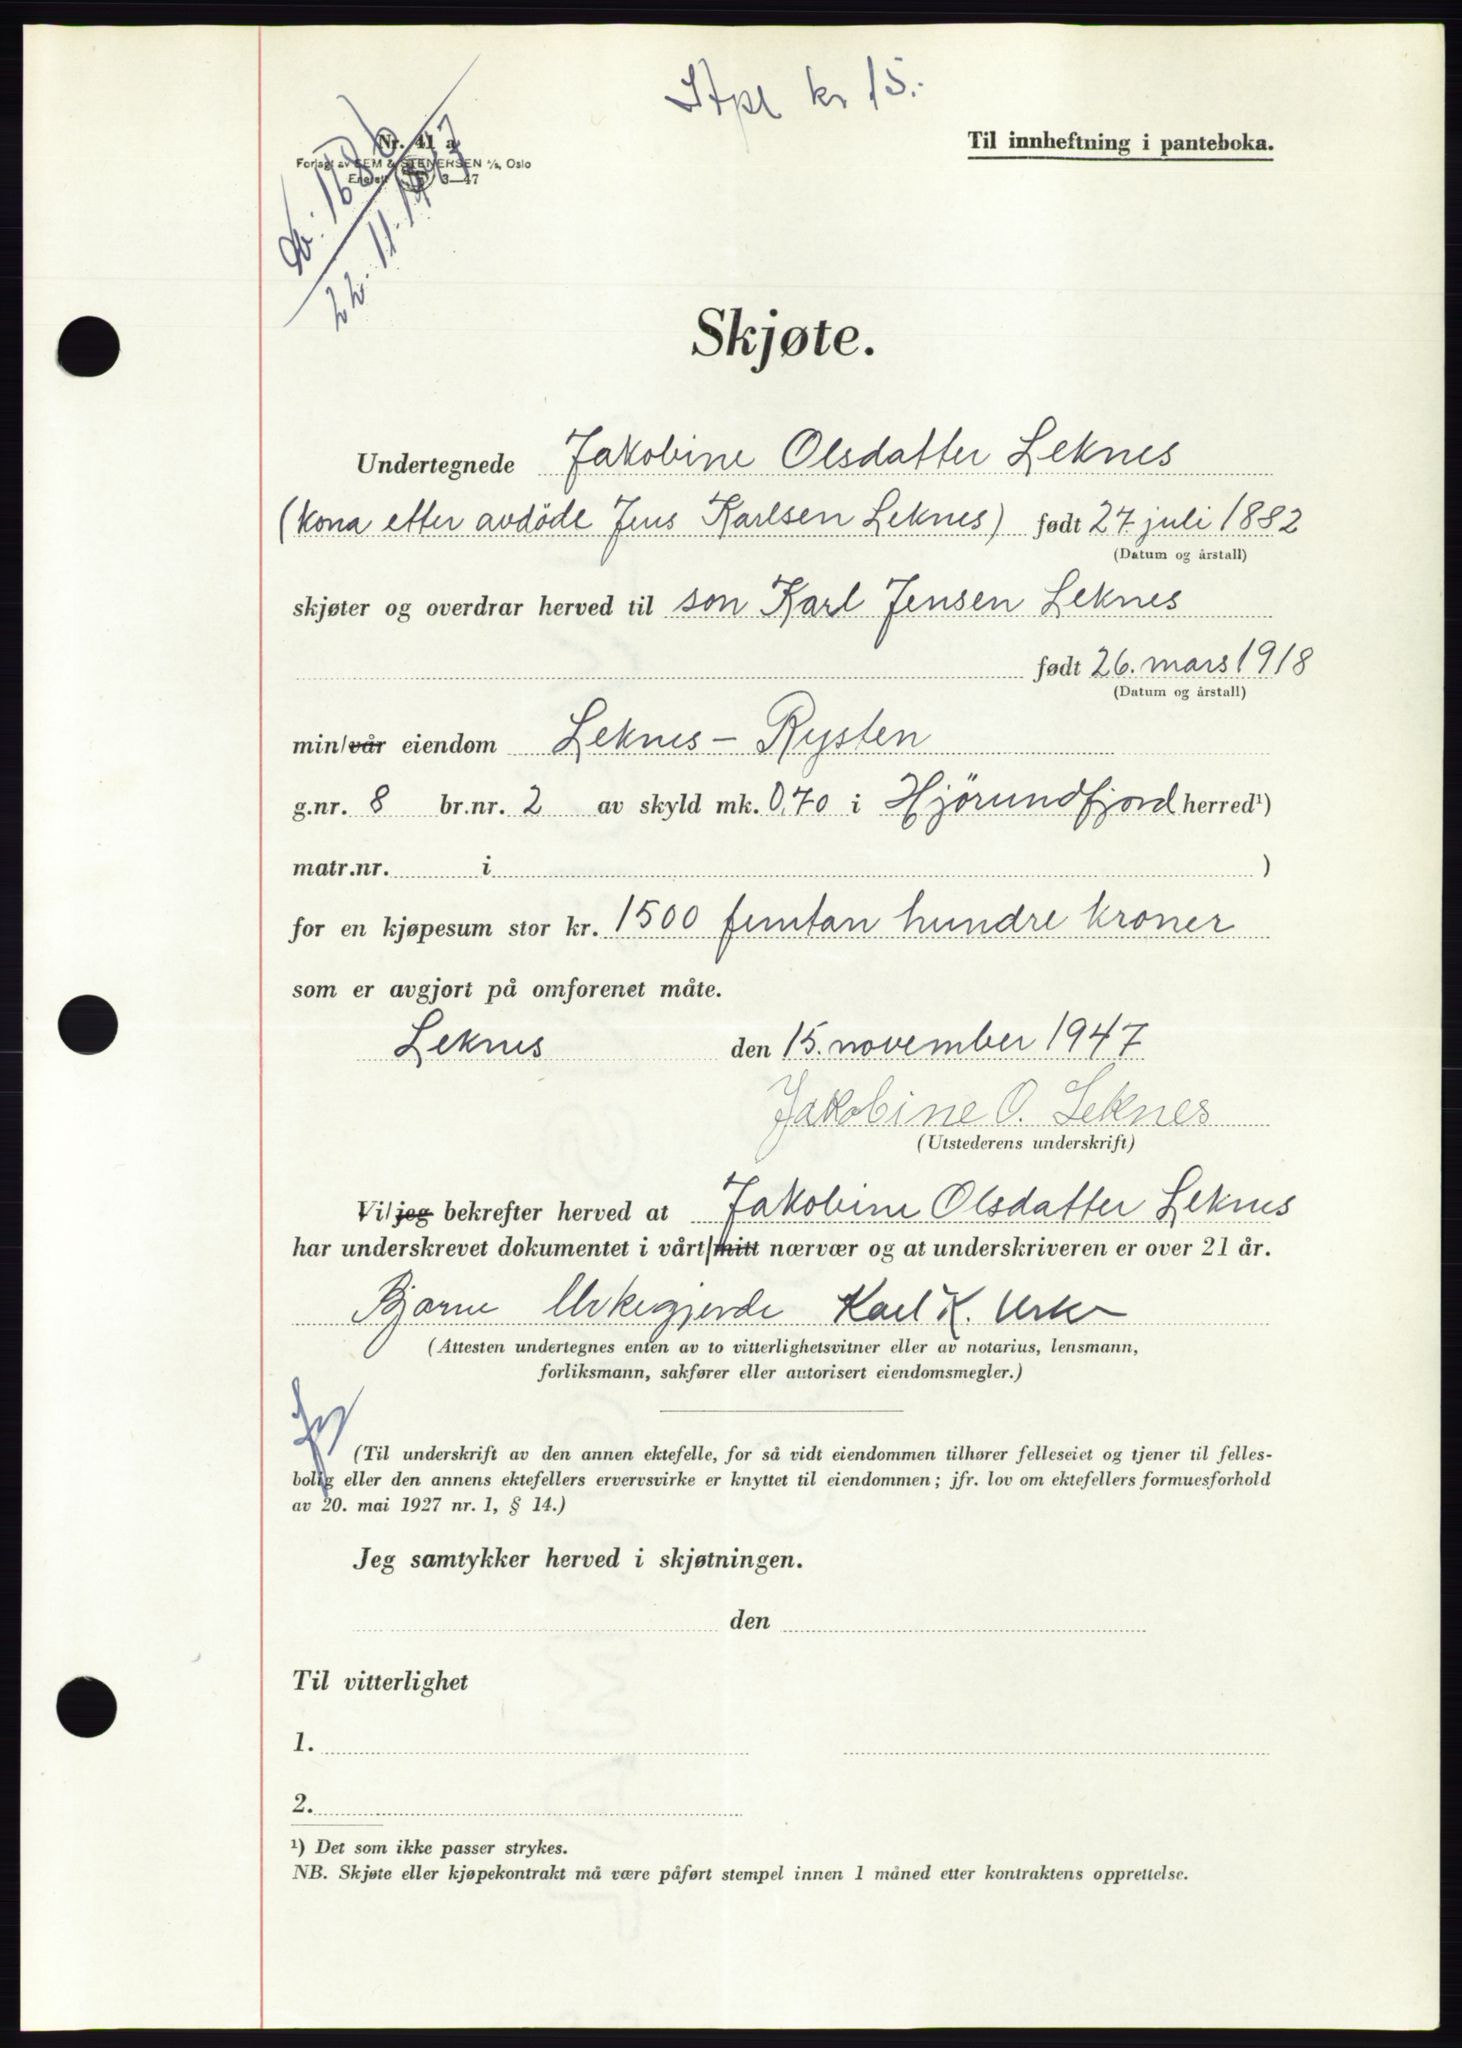 Stpl kr 15.-
Nr. 41 a
Forlagt av SEM & STENERSEN A/S, Oslo
Enerett 3—47
Nr. 1686
22. 11. 1947
Til innheftning i panteboka.
Skjøte.
Undertegnede Jakobine Olsdatter Leknes
(kona etter avdöde Jens Karlsen Leknes) født 27. juli 1882
(Datum og årstall)
skjøter og overdrar herved til son Karl Jensen Leknes
født 26. mars 1918
(Datum og årstall)
min/vår eiendom Leknes – Rysten
g.nr. 8 br.nr. 2 av skyld mk. 0,70 i Hjörundfjord herred¹)
matr.nr. i )
for en kjøpesum stor kr. 1500 femtan hundre kroner
som er avgjort på omforenet måte.
Leknes den 15. november 1947
Jakobine O. Leknes
(Utstederens underskrift)
Vi/jeg bekrefter herved at Jakobine Olsdatter Leknes
har underskrevet dokumentet i vårt/mitt nærvær og at underskriveren er over 21 år.
Bjarne Urkegjerde Karl K. Urke
(Attesten undertegnes enten av to vitterlighetsvitner eller av notarius, lensmann,
forliksmann, sakfører eller autorisert eiendomsmegler.)
(Til underskrift av den annen ektefelle, for så vidt eiendommen tilhører felleseiet og tjener til felles-
bolig eller den annens ektefellers ervervsvirke er knyttet til eiendommen; jfr. lov om ektefellers formuesforhold
av 20. mai 1927 nr. 1, § 14.)
Jeg samtykker herved i skjøtningen.
den
Til vitterlighet
1.
2.
¹) Det som ikke passer strykes.
NB. Skjøte eller kjøpekontrakt må være påført stempel innen 1 måned etter kontraktens opprettelse.